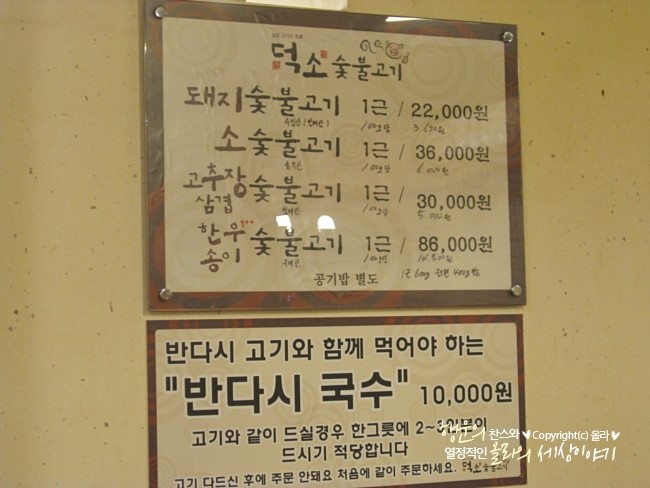 덕소 숯불고기
돼지숯불고기 1근 / 22,000원
100g당 3,670원
소숯불고기 1근 / 36,000원
100g당 6,000원
고추장삼겹숯불고기 1근 / 30,000원
100g당 5,000원
한우1++송이숯불고기 1근 / 86,000원
100g당
공기밥 별도 1근 600g
반다시 고기와 함께 먹어야 하는
"반다시 국수" 10,000원
고기와 같이 드실경우 한그릇에 2~3인분이
드시기 적당합니다
고기 다드신 후에 주문 안돼요 처음에 같이 주문하세요. 덕소숯불고기
행운의 찬스와♥Copyright(c) 올라♥
열정적인 올라의 세상이야기